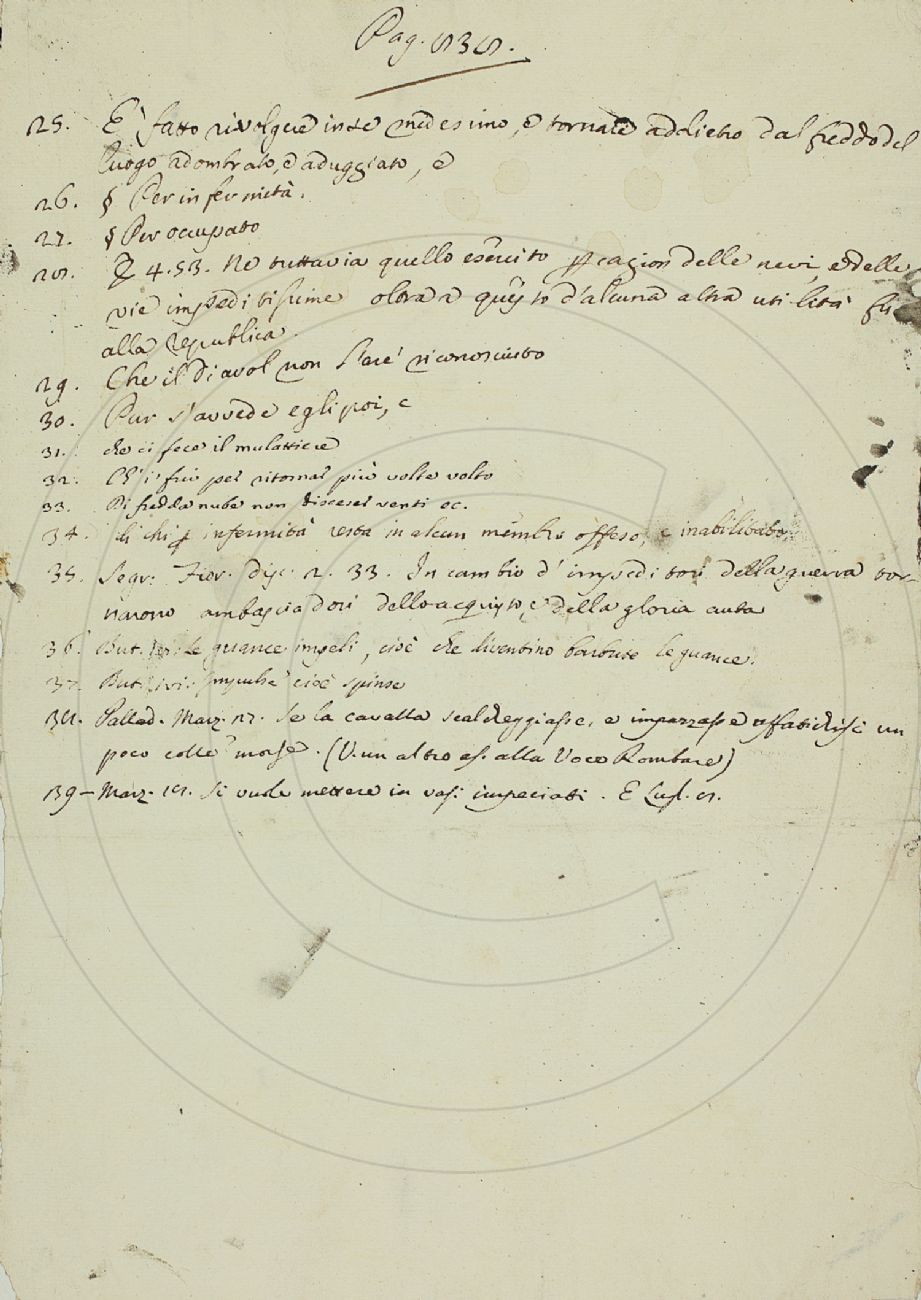 Pag. 838.
25. E' fatto rivolgere in se medesimo, e tornare addietro dal freddo del
luogo adombrato, e aduggiato, e
26. § Per infermità.
27. § Per occupato
28. 4. 53. Ne tuttavia quello esercito p cagion delle nevi, e delle
vie impeditissime oltra a questo d'alcuna altra utilità fu
alla republica.
29. Che il Diavol non sare' riconosciuto
30. Pur s'avvede egli poi, e
31. che ci fece il mulattiere
32. Ch'i' fui per ritornar più volte volto
33. Di fredda nube non disceser venti ec.
34. di chi p infermità resta in alcun membro offeso, e inabilitato
35. Segr. Fior. disc. 2. 33. In cambio d'impeditori della guerra tor-
narono ambasciadori dello acquisto, e della gloria avuta
36. But. ivi: Le guance impeli, cioè che diventino barbute le guance.
37. But. ivi: Impulse cioè spinse
38. Pallad. Marz. 27. Se la cavalla scaldeggiasse, e impazzasse affatichisi un
poco colle morse. (V. un altro es. alla Voce Rombare)
39 - Marz. 18. Si vuole mettere in vasi impeciati. E Lugl. 8.